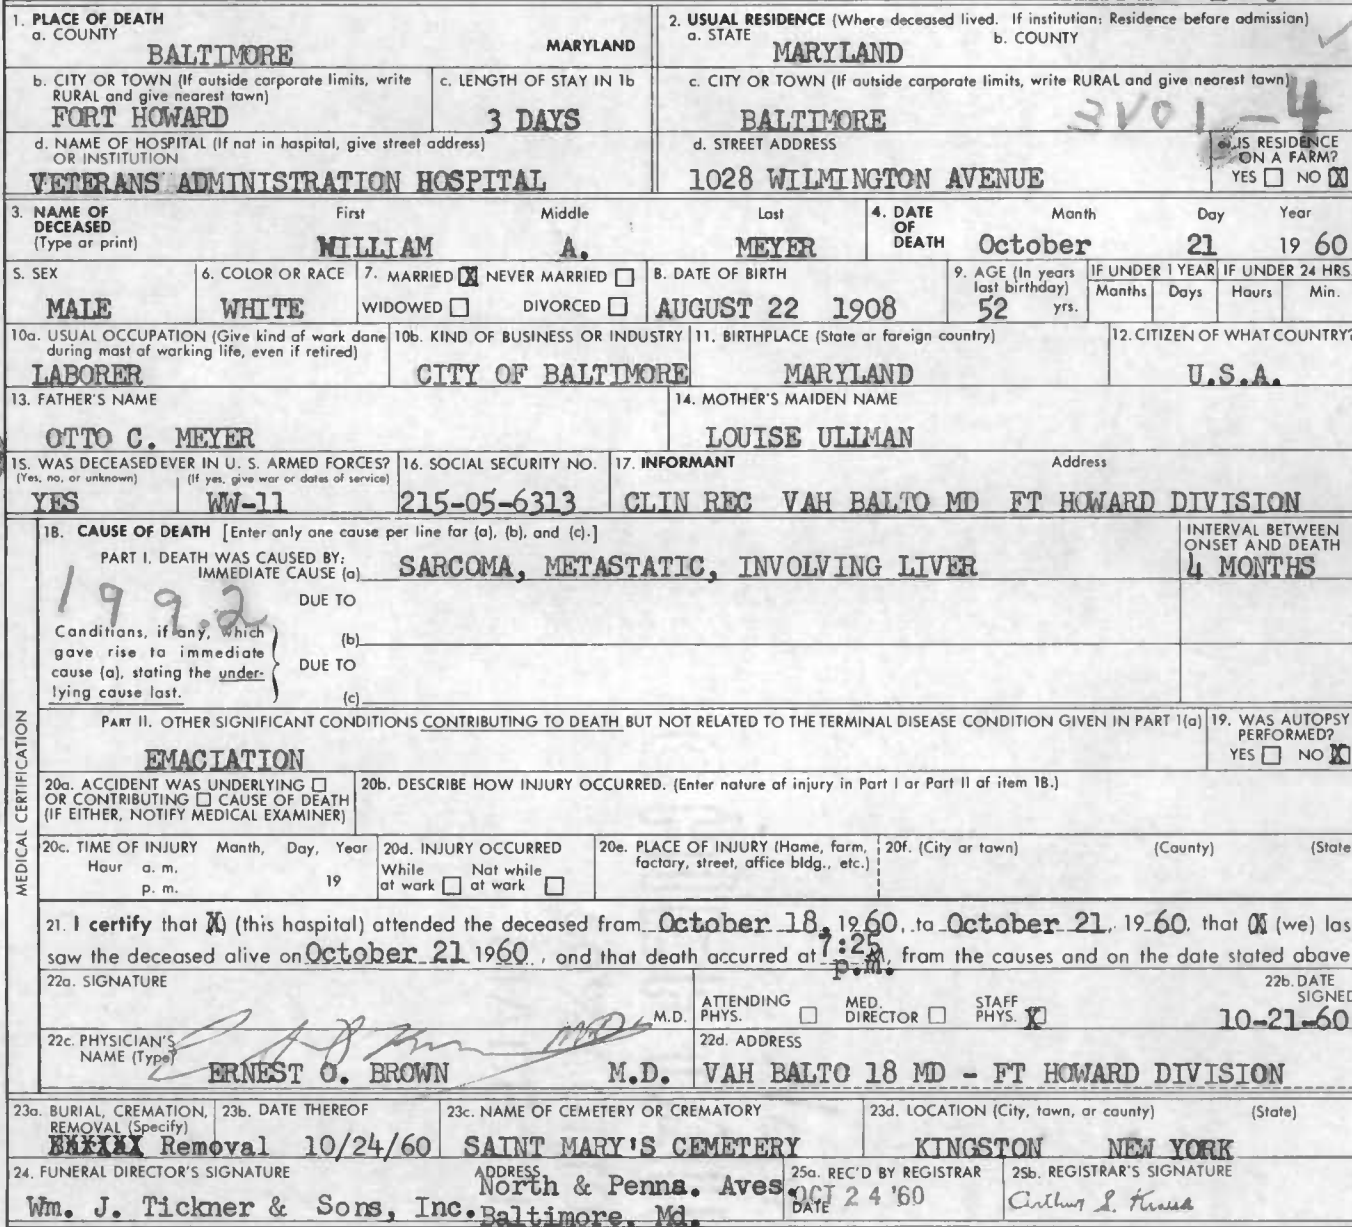 1. PLACE OF DEATH
a. COUNTY
BALTIMORE MARYLAND
2. USUAL RESIDENCE (Where deceased lived. If institution: Residence before admission)
a. STATE b. COUNTY
MARYLAND
b. CITY OR TOWN (If outside corporate limits, write
RURAL and give nearest town)
FORT HOWARD
c. LENGTH OF STAY IN 1b
3 DAYS
c. CITY OR TOWN (If outside corporate limits, write RURAL and give nearest town)
BALTIMORE 3V01-4
d. NAME OF HOSPITAL (If not in hospital, give street address)
OR INSTITUTION
VETERANS ADMINISTRATION HOSPITAL
d. STREET ADDRESS
1028 WILMINGTON AVENUE
e. IS RESIDENCE
ON A FARM?
YES NO X
3. NAME OF
DECEASED
(Type or print)
First Middle Last
WILLIAM A. MEYER
4. DATE
OF
DEATH
Month Day Year
October 21 1960
5. SEX
MALE
6. COLOR OR RACE
WHITE
7. MARRIED X NEVER MARRIED
WIDOWED DIVORCED
8. DATE OF BIRTH
AUGUST 22 1908
9. AGE (In years
last birthday)
52 yrs.
IF UNDER 1 YEAR
Months Days
IF UNDER 24 HRS.
Hours Min.
10a. USUAL OCCUPATION (Give kind of work done
during most of working life, even if retired)
LABORER
10b. KIND OF BUSINESS OR INDUSTRY
CITY OF BALTIMORE
11. BIRTHPLACE (State or foreign country)
MARYLAND
12. CITIZEN OF WHAT COUNTRY?
U.S.A.
13. FATHER'S NAME
OTTO C. MEYER
14. MOTHER'S MAIDEN NAME
LOUISE ULLMAN
15. WAS DECEASED EVER IN U. S. ARMED FORCES?
(Yes, no, or unknown) (If yes, give war or dates of service)
YES WW-11
16. SOCIAL SECURITY NO.
215-05-6313
17. INFORMANT Address
CLIN REC VAH BALTO MD FT HOWARD DIVISION
MEDICAL CERTIFICATION
18. CAUSE OF DEATH [Enter only one cause per line for (a), (b), and (c).]
PART I. DEATH WAS CAUSED BY:
IMMEDIATE CAUSE (a) SARCOMA, METASTATIC, INVOLVING LIVER
INTERVAL BETWEEN
ONSET AND DEATH
4 MONTHS
199.2
DUE TO
Conditions, if any, which
gave rise to immediate
cause (a), stating the under-
lying cause last.
(b)
DUE TO
(c)
PART II. OTHER SIGNIFICANT CONDITIONS CONTRIBUTING TO DEATH BUT NOT RELATED TO THE TERMINAL DISEASE CONDITION GIVEN IN PART 1(a)
EMACIATION
19. WAS AUTOPSY
PERFORMED?
YES NO X
20a. ACCIDENT WAS UNDERLYING
OR CONTRIBUTING CAUSE OF DEATH
(IF EITHER, NOTIFY MEDICAL EXAMINER)
20b. DESCRIBE HOW INJURY OCCURRED. (Enter nature of injury in Part I or Part II of item 18.)
20c. TIME OF INJURY Month, Day, Year
Hour a. m.
p. m. 19
20d. INJURY OCCURRED
While at work Not while at work
20e. PLACE OF INJURY (Home, farm,
factory, street, office bldg., etc.)
20f. (City or town) (County) (State
21. I certify that X) (this hospital) attended the deceased from October 18, 1960, to October 21, 1960, that (X (we) las
saw the deceased alive on October 21 1960, and that death occurred at 7:25 p.m. M, from the causes and on the date stated above
22a. SIGNATURE
M.D.
ATTENDING
PHYS.
MED.
DIRECTOR
STAFF
PHYS. X
22b. DATE
SIGNED
10-21-60
22c. PHYSICIAN'S
NAME (Type)
ERNEST O. BROWN M.D.
22d. ADDRESS
VAH BALTO 18 MD - FT HOWARD DIVISION
23a. BURIAL, CREMATION,
REMOVAL (Specify)
Removal
23b. DATE THEREOF
10/24/60
23c. NAME OF CEMETERY OR CREMATORY
SAINT MARY'S CEMETERY
23d. LOCATION (City, town, or county) (State)
KINGSTON NEW YORK
24. FUNERAL DIRECTOR'S SIGNATURE
Wm. J. Tickner & Sons, Inc.
ADDRESS
North & Penna. Aves.
Baltimore, Md.
25a. REC'D BY REGISTRAR
DATE OCT 24 '60
25b. REGISTRAR'S SIGNATURE
Arthur S. Kraus